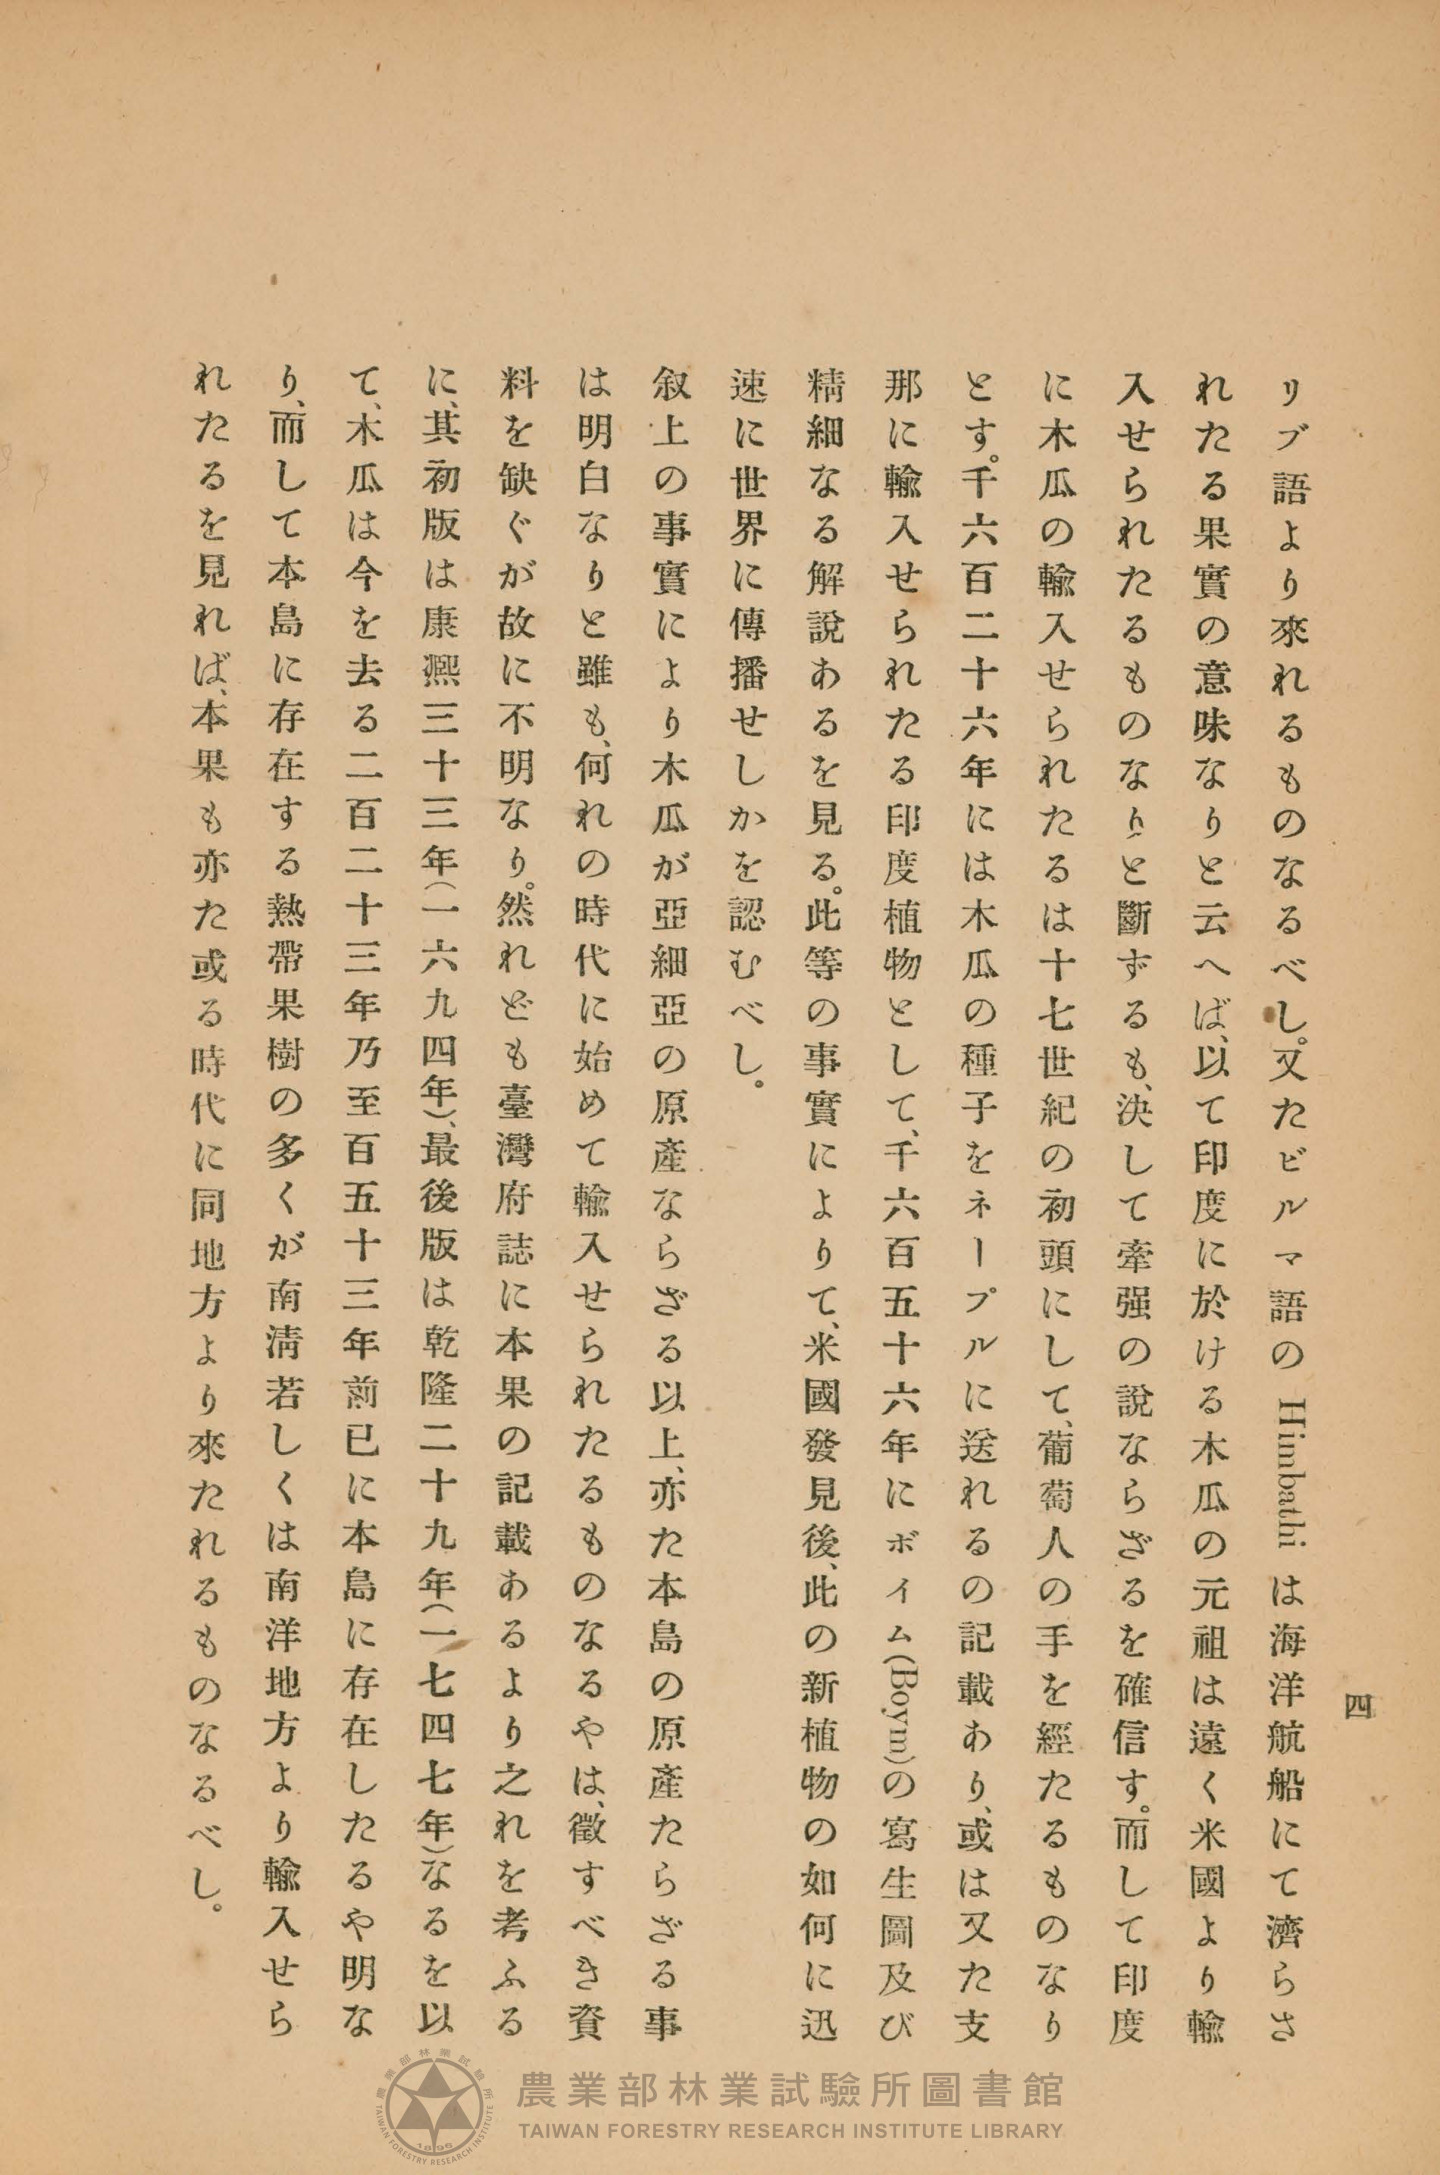 四
リブ語より來れるものなるべし。又たビルマ語の Himbathi は海洋航船にて濟らさ
れたる果實の意味なりと云へば、以て印度に於ける木瓜の元祖は遠く米國より輸
入せられたるものなりと斷ずるも、決して牽强の說ならざるを確信す。而して印度
に木瓜の輸入せられたるは十七世紀の初頭にして、葡萄人の手を經たるものなり
とす。千六百二十六年には木瓜の種子をネープルに送れるの記載あり、或は又た支
那に輸入せられたる印度植物として、千六百五十六年にボイム(Boym)の寫生圖及び
精細なる解說あるを見る。此等の事實によりて、米國發見後、此の新植物の如何に迅
速に世界に傳播せしかを認むべし。
叙上の事實により木瓜が亞細亞の原產ならざる以上、亦た本島の原產たらざる事
は明白なりと雖も、何れの時代に始めて輸入せられたるものなるやは、徵すべき資
料を缺ぐが故に不明なり。然れども臺灣府誌に本果の記載あるより之れを考ふる
に、其初版は康熙三十三年(一六九四年)、最後版は乾隆二十九年(一七四七年)なるを以
て、木瓜は今を去る二百二十三年乃至百五十三年前已に本島に存在したるや明な
り、而して本島に存在する熱帶果樹の多くが南淸若しくは南洋地方より輸入せら
れたるを見れば、本果も亦た或る時代に同地方より來たれるものなるべし。
農業部林業試驗所圖書館
TAIWAN FORESTRY RESEARCH INSTITUTE LIBRARY
農業部林業試驗所
TAIWAN FORESTRY RESEARCH INSTITUTE
1896